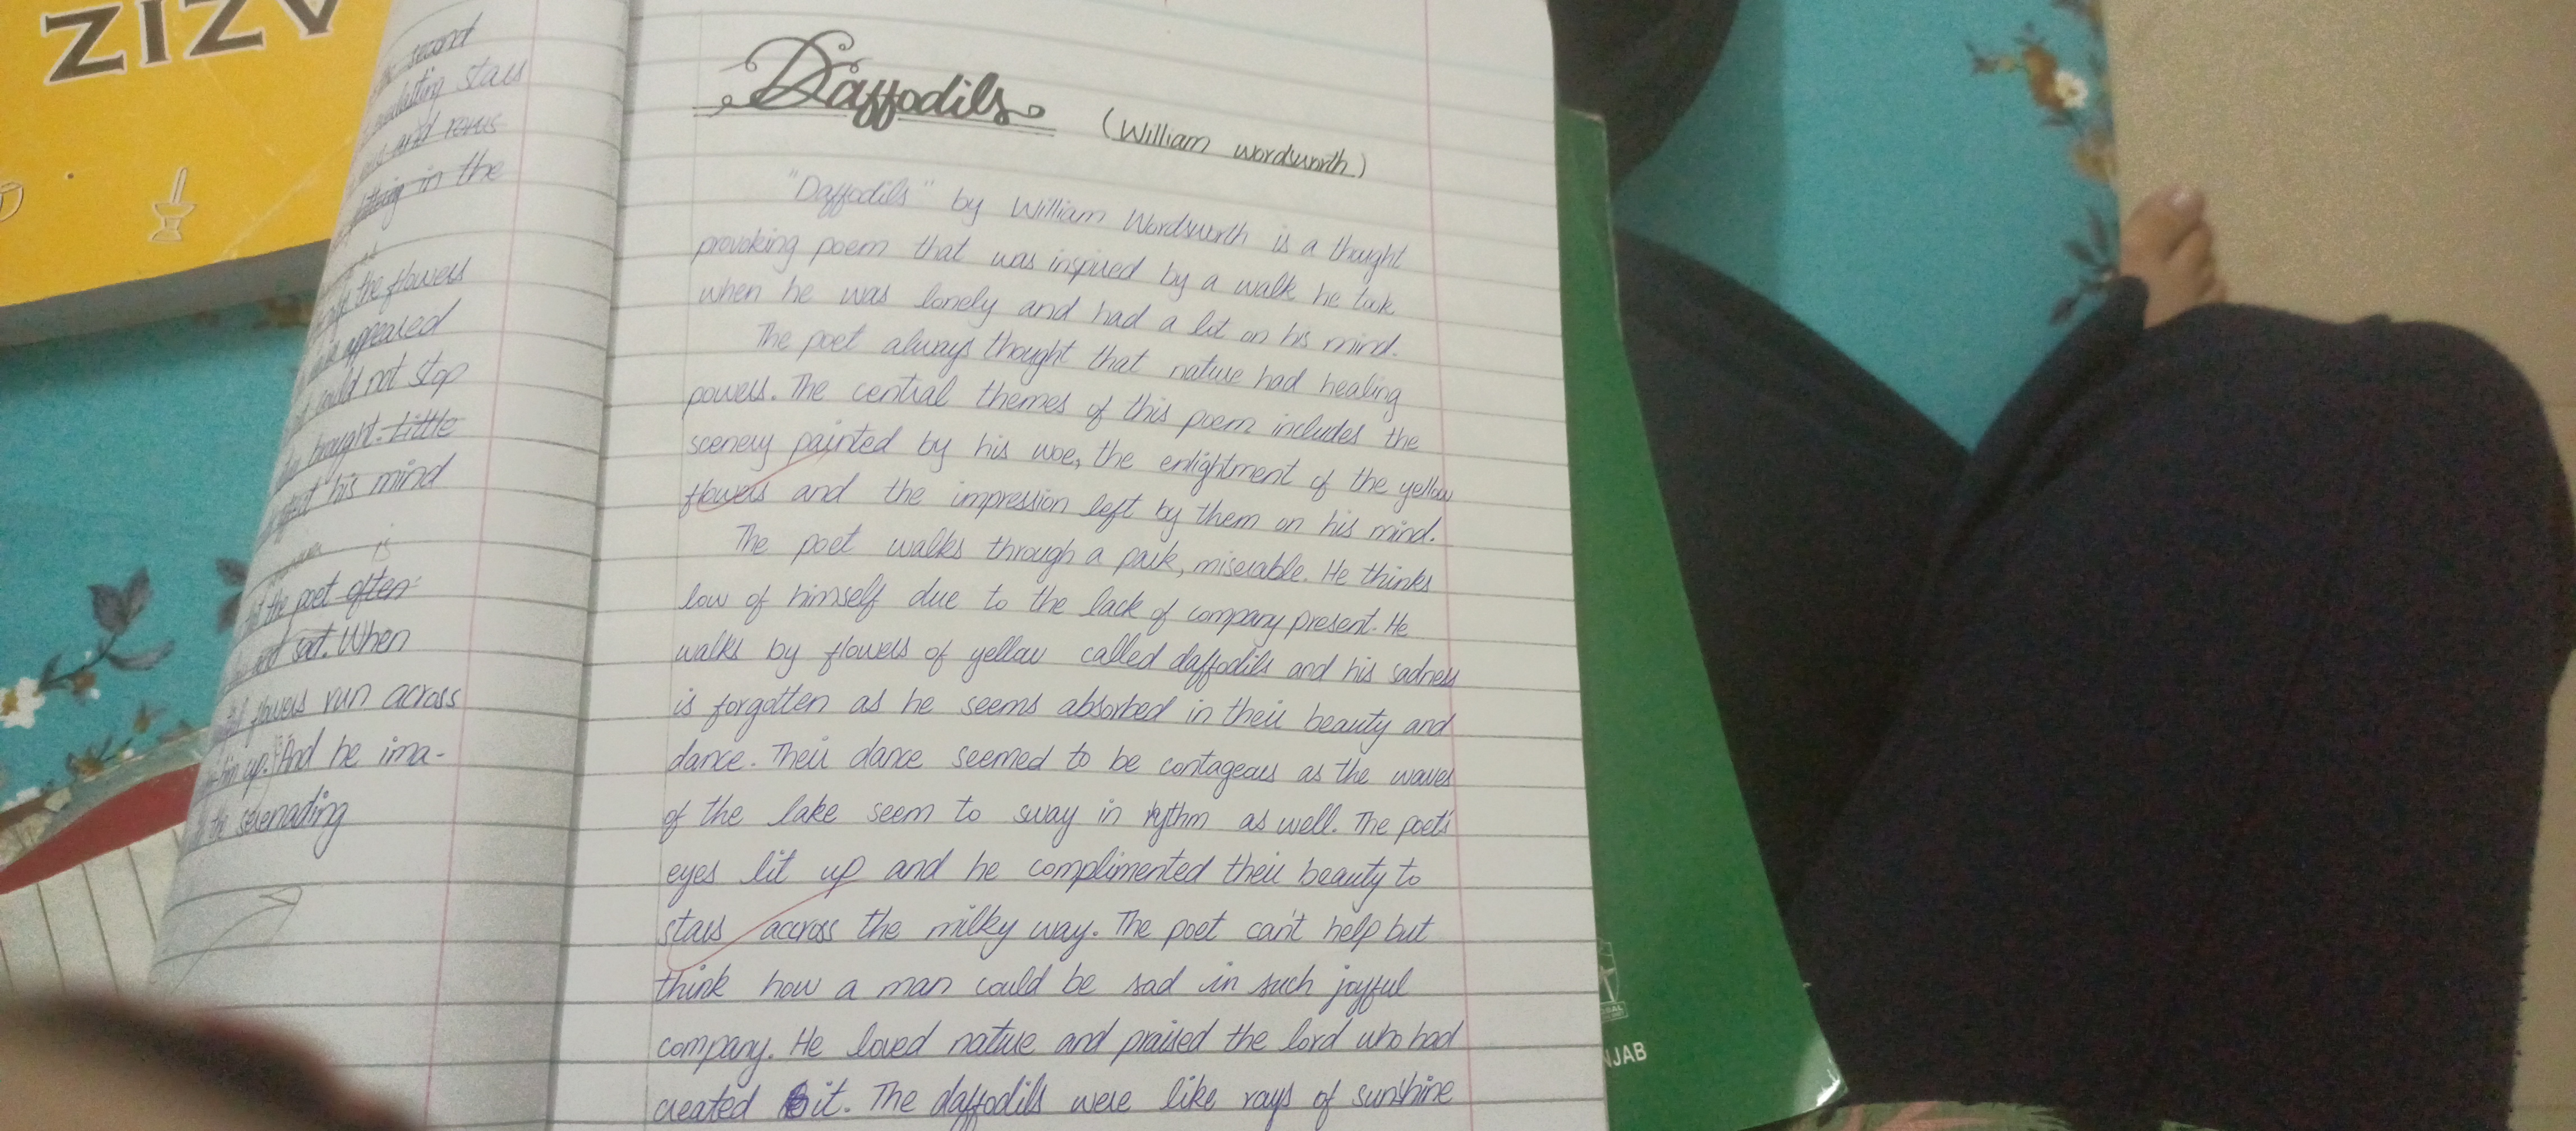 ZIZ
second
stars
and rows
in the
the flowers
appeared
could not stop
brought little
his mind
is
the poet often
sad. When
flowers run across
up. And he ima-
the serenading
Daffodils
(William wordsworth)
"Daffodils" by William Wordsworth is a thought
provoking poem that was inspired by a walk he took
when he was lonely and had a lot on his mind.
The poet always thought that nature had healing
powers. The central themes of this poem includes the
scenery painted by his woe, the enlightment of the yellow
flowers and the impression left by them on his mind.
The poet walks through a park, miserable. He thinks
low of himself due to the lack of company present. He
walks by flowers of yellow called daffodils and his sadness
is forgotten as he seems absorbed in their beauty and
dance. Their dance seemed to be contageous as the waves
of the lake seem to sway in rythm as well. The poet's
eyes lit up and he complimented their beauty to
stars accross the milky way. The poet can't help but
think how a man could be sad in such joyful
company. He loved nature and praised the lord who had
created it. The daffodils were like rays of sunshine
NJAB